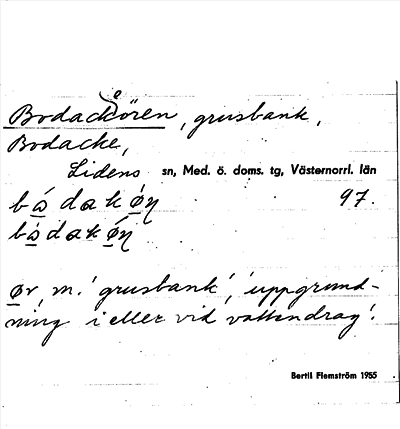 Bodackören, grusbank,
Bodacke,
Lidens sn, Med. ö. doms. tg, Västernorrl. län
97.
ør, m. 'grusbank', 'uppgrund-
ning i eller vid vattendrag'.
Bertil Flemström 1955